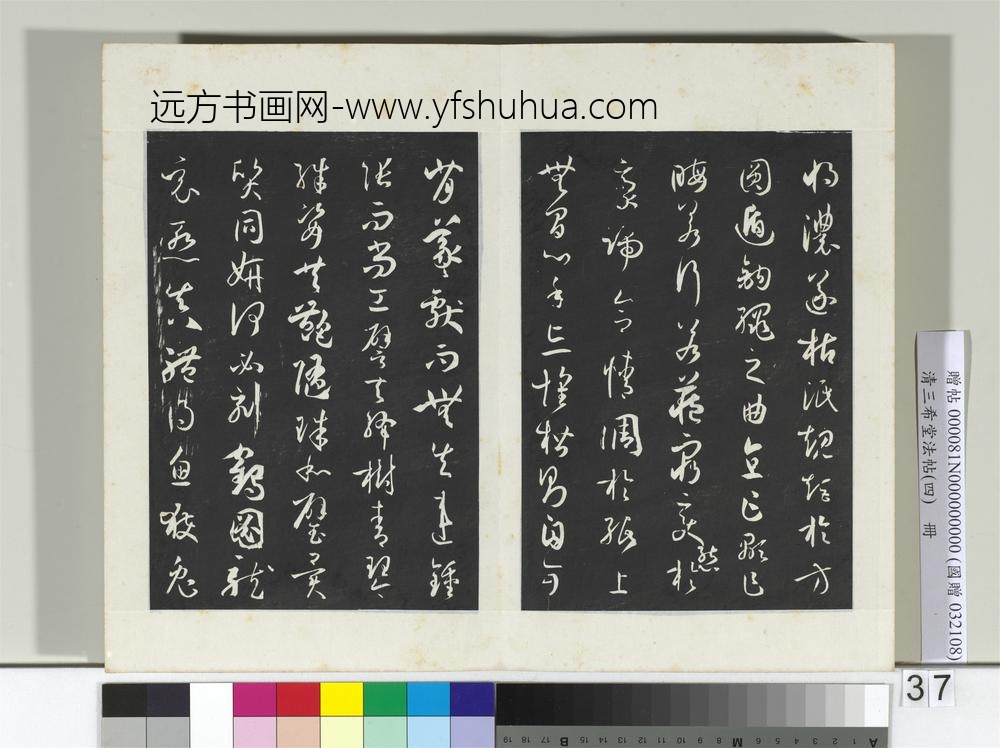 远方书画网-www.yfshuhua.com
將濃遂枯泯規矩於方
圓遁鉤繩之曲直乍顯乍
晦若行若藏窮變態於
豪端合情調於紙上
無間心手忘懷楷則自可
背羲獻而無失違鍾
張而尚工譬夫絳樹青琴
殊姿共艷隨珠和璧異
質同妍何必刻鶴圖龍
竟慚真體得魚獲兔
贈帖 000081N000000000 (國贈 032108)
清三希堂法帖(四) 冊
37